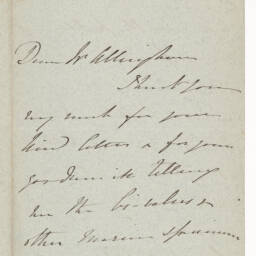 Dear Mr Allingham
Thank you
very much for your
kind letter & for your
goodness in telling
me the bi-valves &
other marine specimens